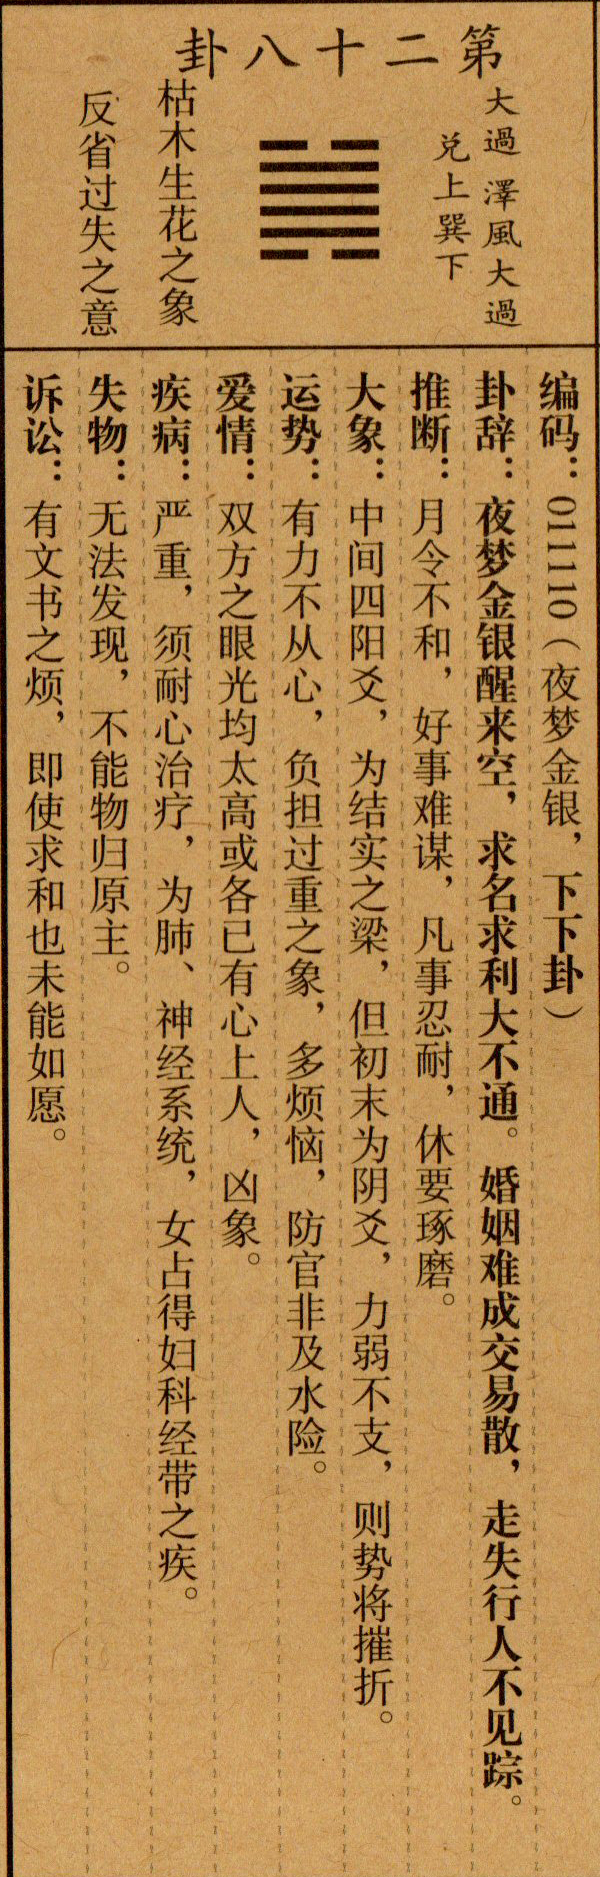 第二十八卦
大過 澤風大過
兑上巽下
枯木生花之象
反省过失之意
编码：011110（夜梦金银，下下卦）
卦辞：夜梦金银醒来空，求名求利大不通。婚姻难成交易散，走失行人不见踪。
推断：月令不和，好事难谋，凡事忍耐，休要琢磨。
大象：中间四阳爻，为结实之梁，但初末为阴爻，力弱不支，则势将摧折。
运势：有力不从心，负担过重之象，多烦恼，防官非及水险。
爱情：双方之眼光均太高或各已有心上人，凶象。
疾病：严重，须耐心治疗，为肺、神经系统，女占得妇科经带之疾。
失物：无法发现，不能物归原主。
诉讼：有文书之烦，即使求和也未能如愿。